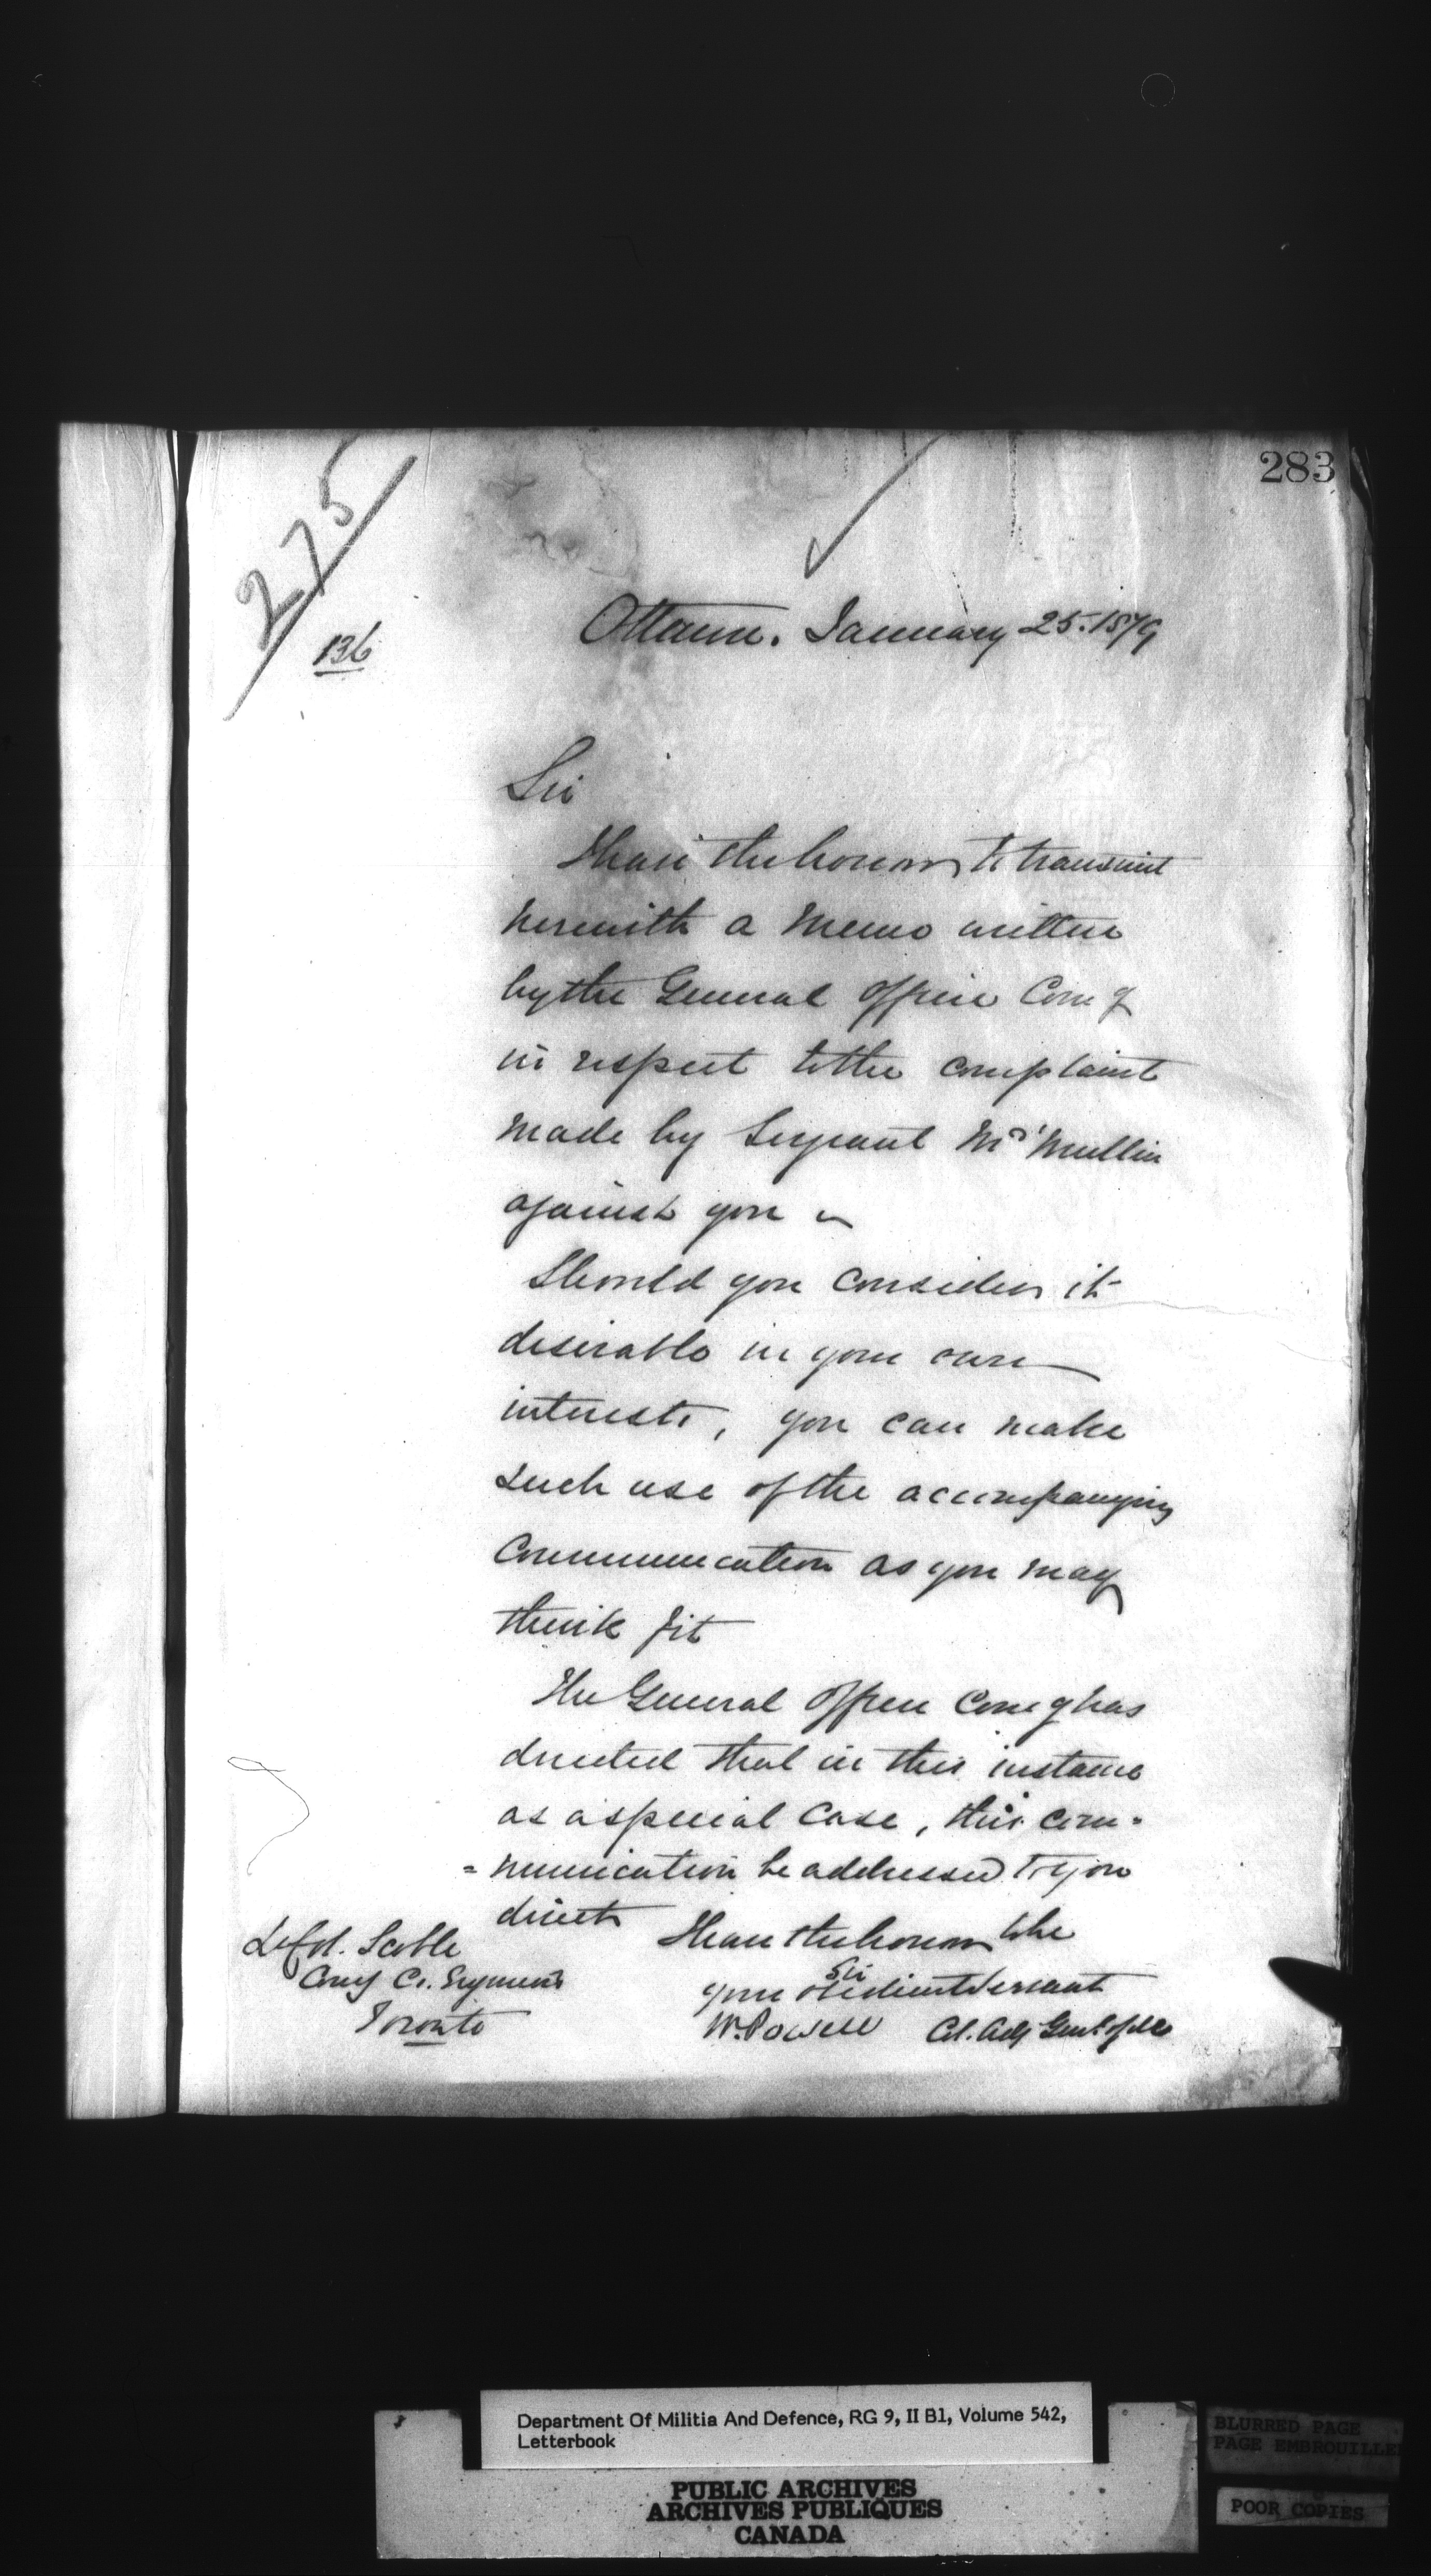 283
275
136
Ottawa. January 25. 1879
Sir
I have the honour to transmit
herewith a Memo written
by the General Officer Comg
in respect to the complaint
made by Sergeant McMullin
against you
Should you consider it
desirable in your own
interests, you can make
such use of the accompanying
Communication as you may
think fit
The General Officer Comg has
directed that in this instance
as a special Case, this com-
=munication be addressed to you
direct
I have the honour to be
Sir
your obedient Servant
W. Powell Col. Adj Genl. of Ma
Lt Col. Scoble
Comg Co. Engineers
Toronto
Department Of Militia And Defence, RG 9, II B1, Volume 542,
Letterbook
PUBLIC ARCHIVES
ARCHIVES PUBLIQUES
CANADA
BLURRED PAGE
PAGE EMBROUILLE
POOR COPIES